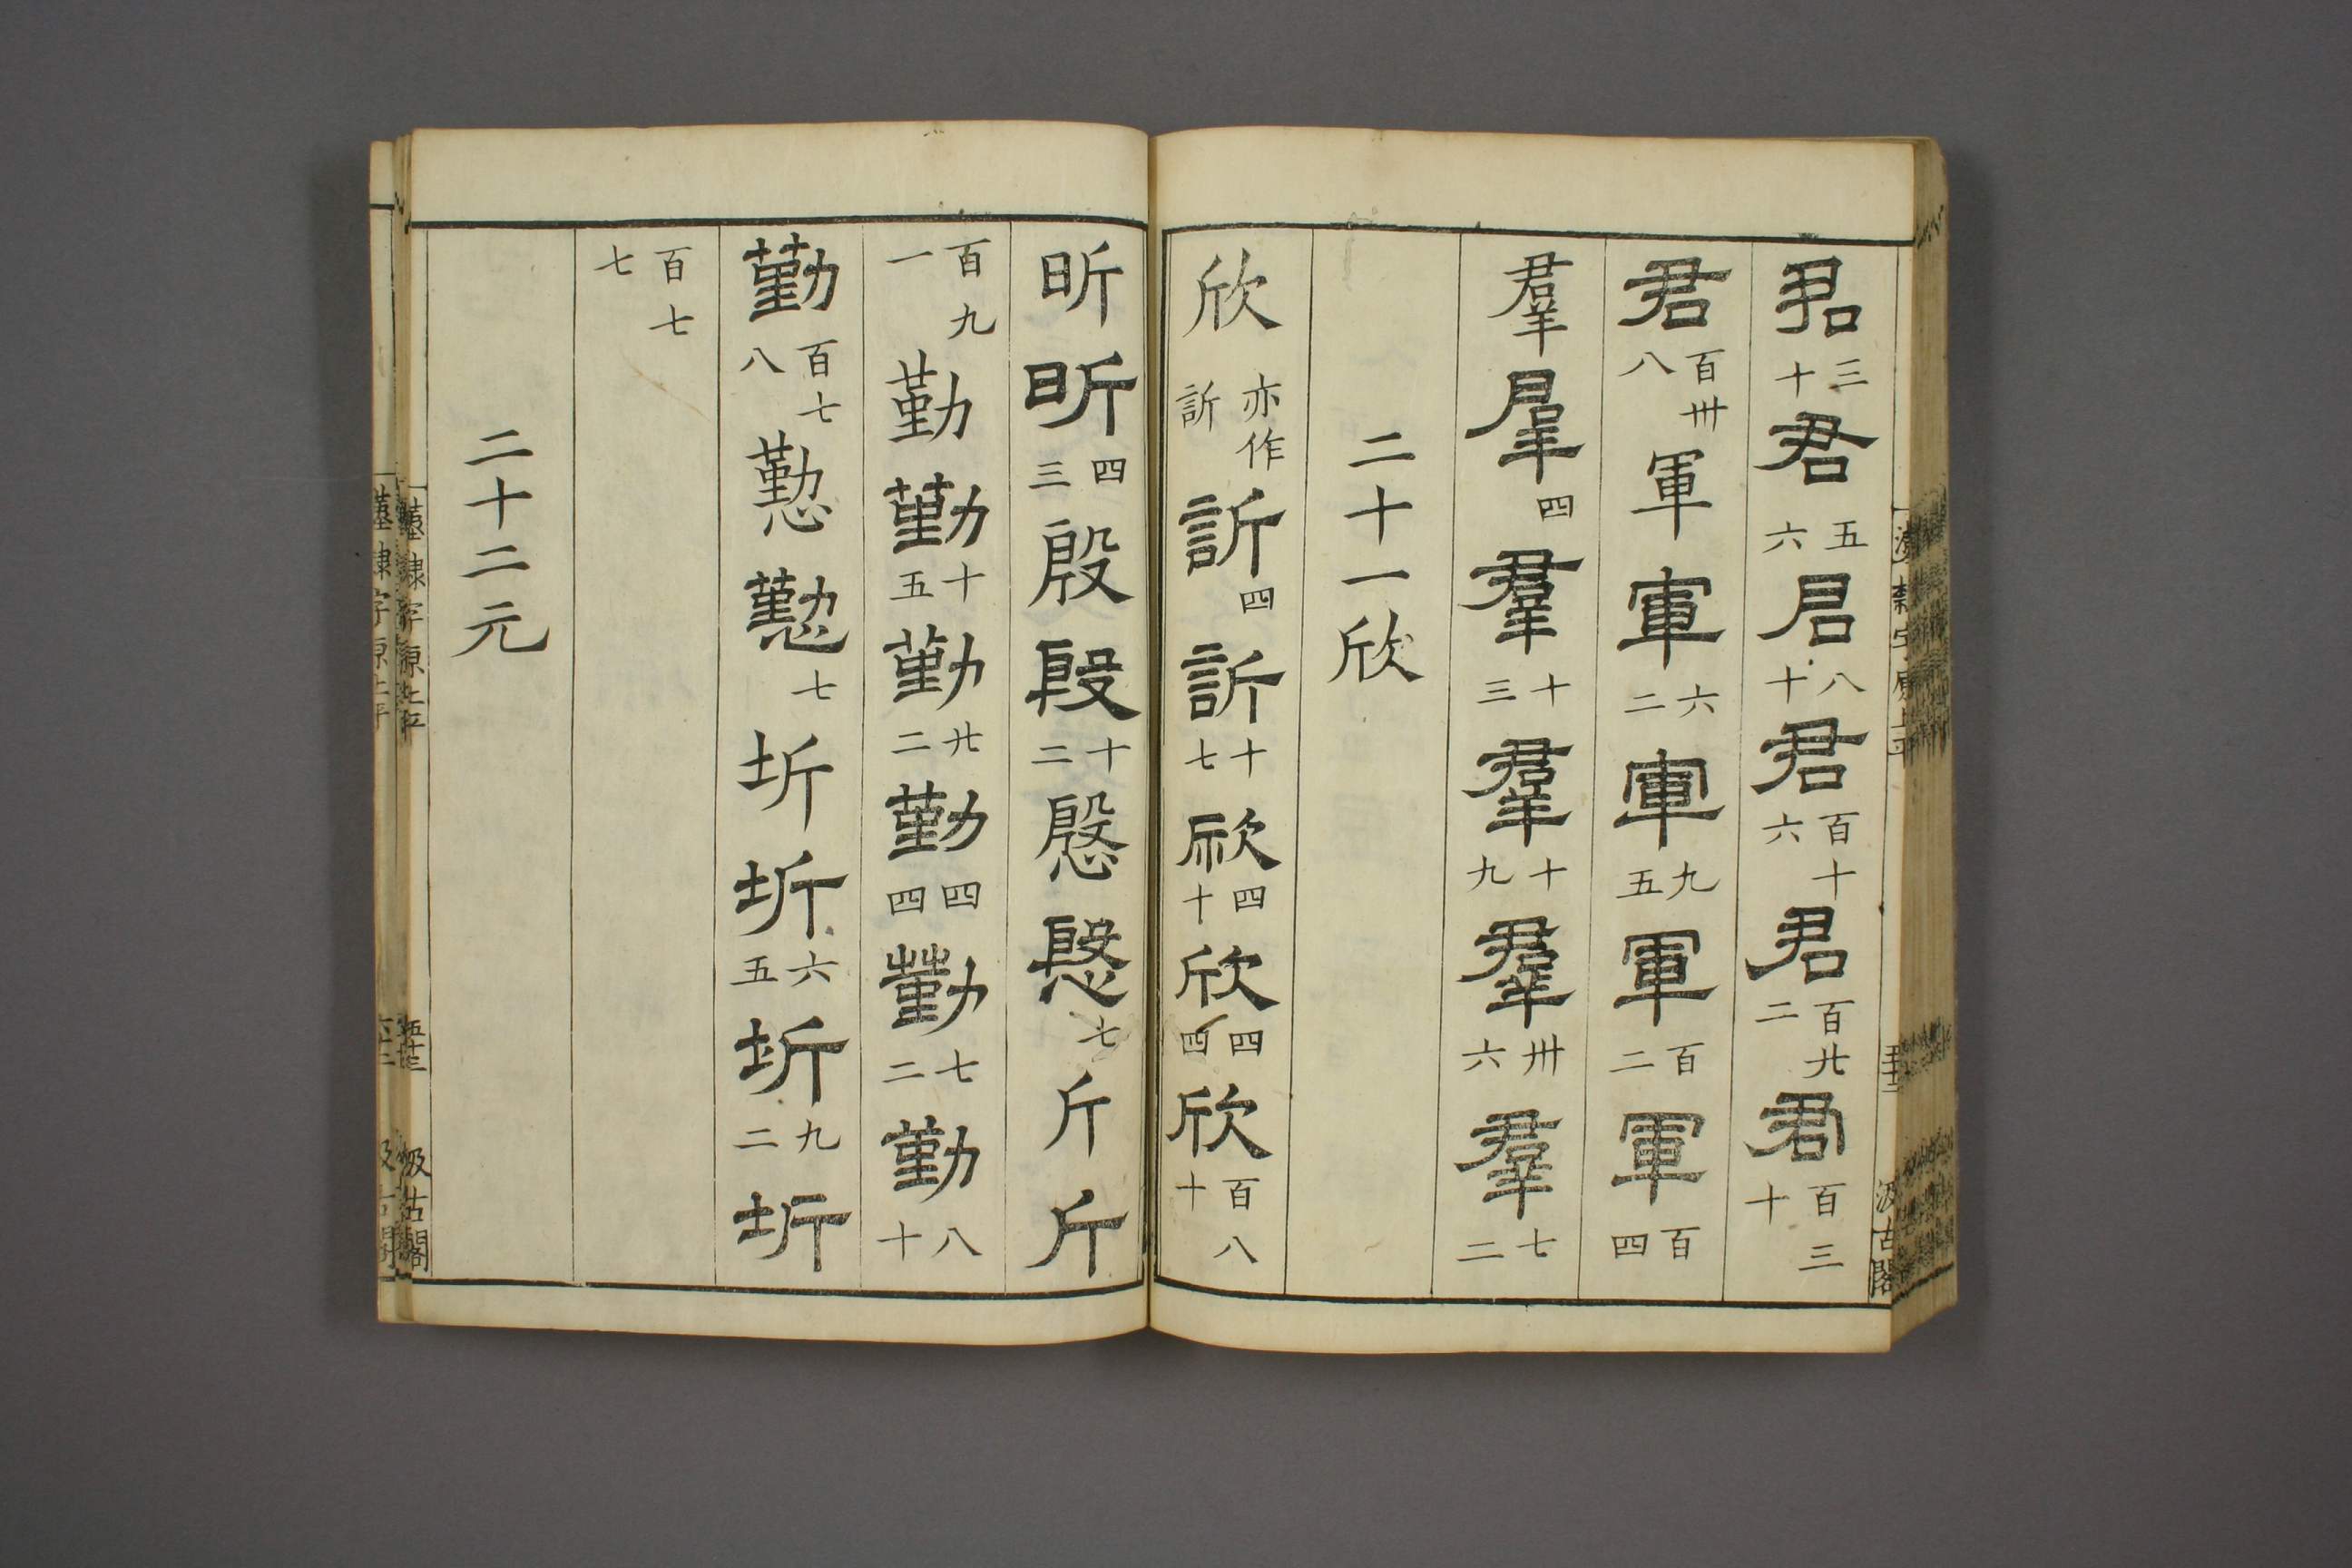 君三十君五六君八十君百十六君百廿二君百三十
君百卅八軍軍六二軍九五軍百二軍百四
羣羣四羣十三羣十九羣卅六羣七二
二十一欣
欣亦作訢訢四訢十七欣四十欣四四欣百八十
昕昕四三殷殷十二慇慇七斤斤
百九一勤勤十五勤廿二勤四四勤七二勤八十
勤百七八懃懃七圻圻六五圻九二圻
百七七
二十二元
漢隸字原上平
汲古閣